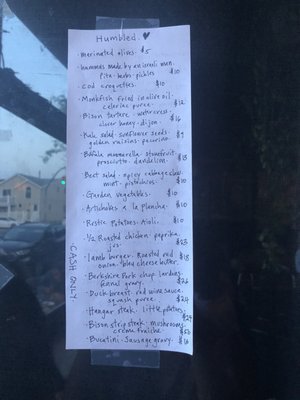 Humbled. ♥
- marinated olives. $5
- hummus made by an israeli man.
pita. herbs. pickles $10
- cod croquettes. $10
- Monkfish fried in olive oil.
celeriac puree. $12
- Bison tartare. watercress.
clover honey. dijon. $16
- Kale salad. sunflower seeds.
golden raisins. pecorino. $9
- Bufala mozzarella. stonefruit.
prosciutto. dandelion $13
- Beet salad. spicy cabbage
mint. pistachios $10
- Garden vegetables. $10
- Artichokes a la plancha. $10
- Rustic Potatoes. Aioli. $10
- 1/2 Roasted chicken. paprika
jus. $23
- lamb burger. Roasted red
onion. bleu cheese butter. $18
- Berkshire Pork chop. lardons
fennel gravy. $26
- Duck breast. red wine sauce
squash puree. $24
- Hangar steak. little potatoes. $24
- Bison strip steak. mushrooms
crema fraiche
- Bucatini. Sausage gravy. $16
CASH ONLY